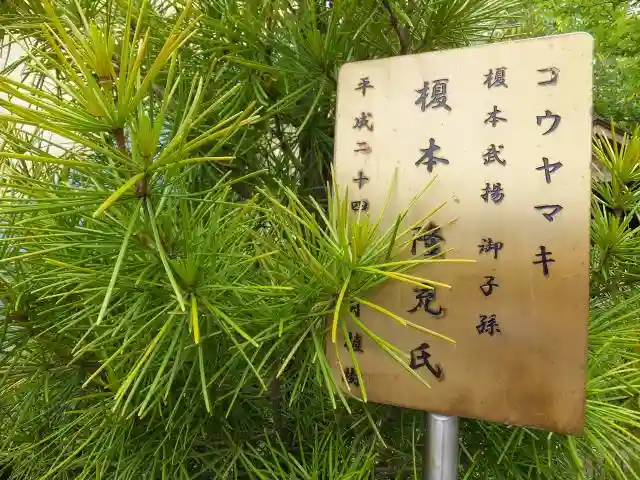 コウヤマキ
榎本武揚 御子孫
榎本隆充氏
平成二十四
月植樹